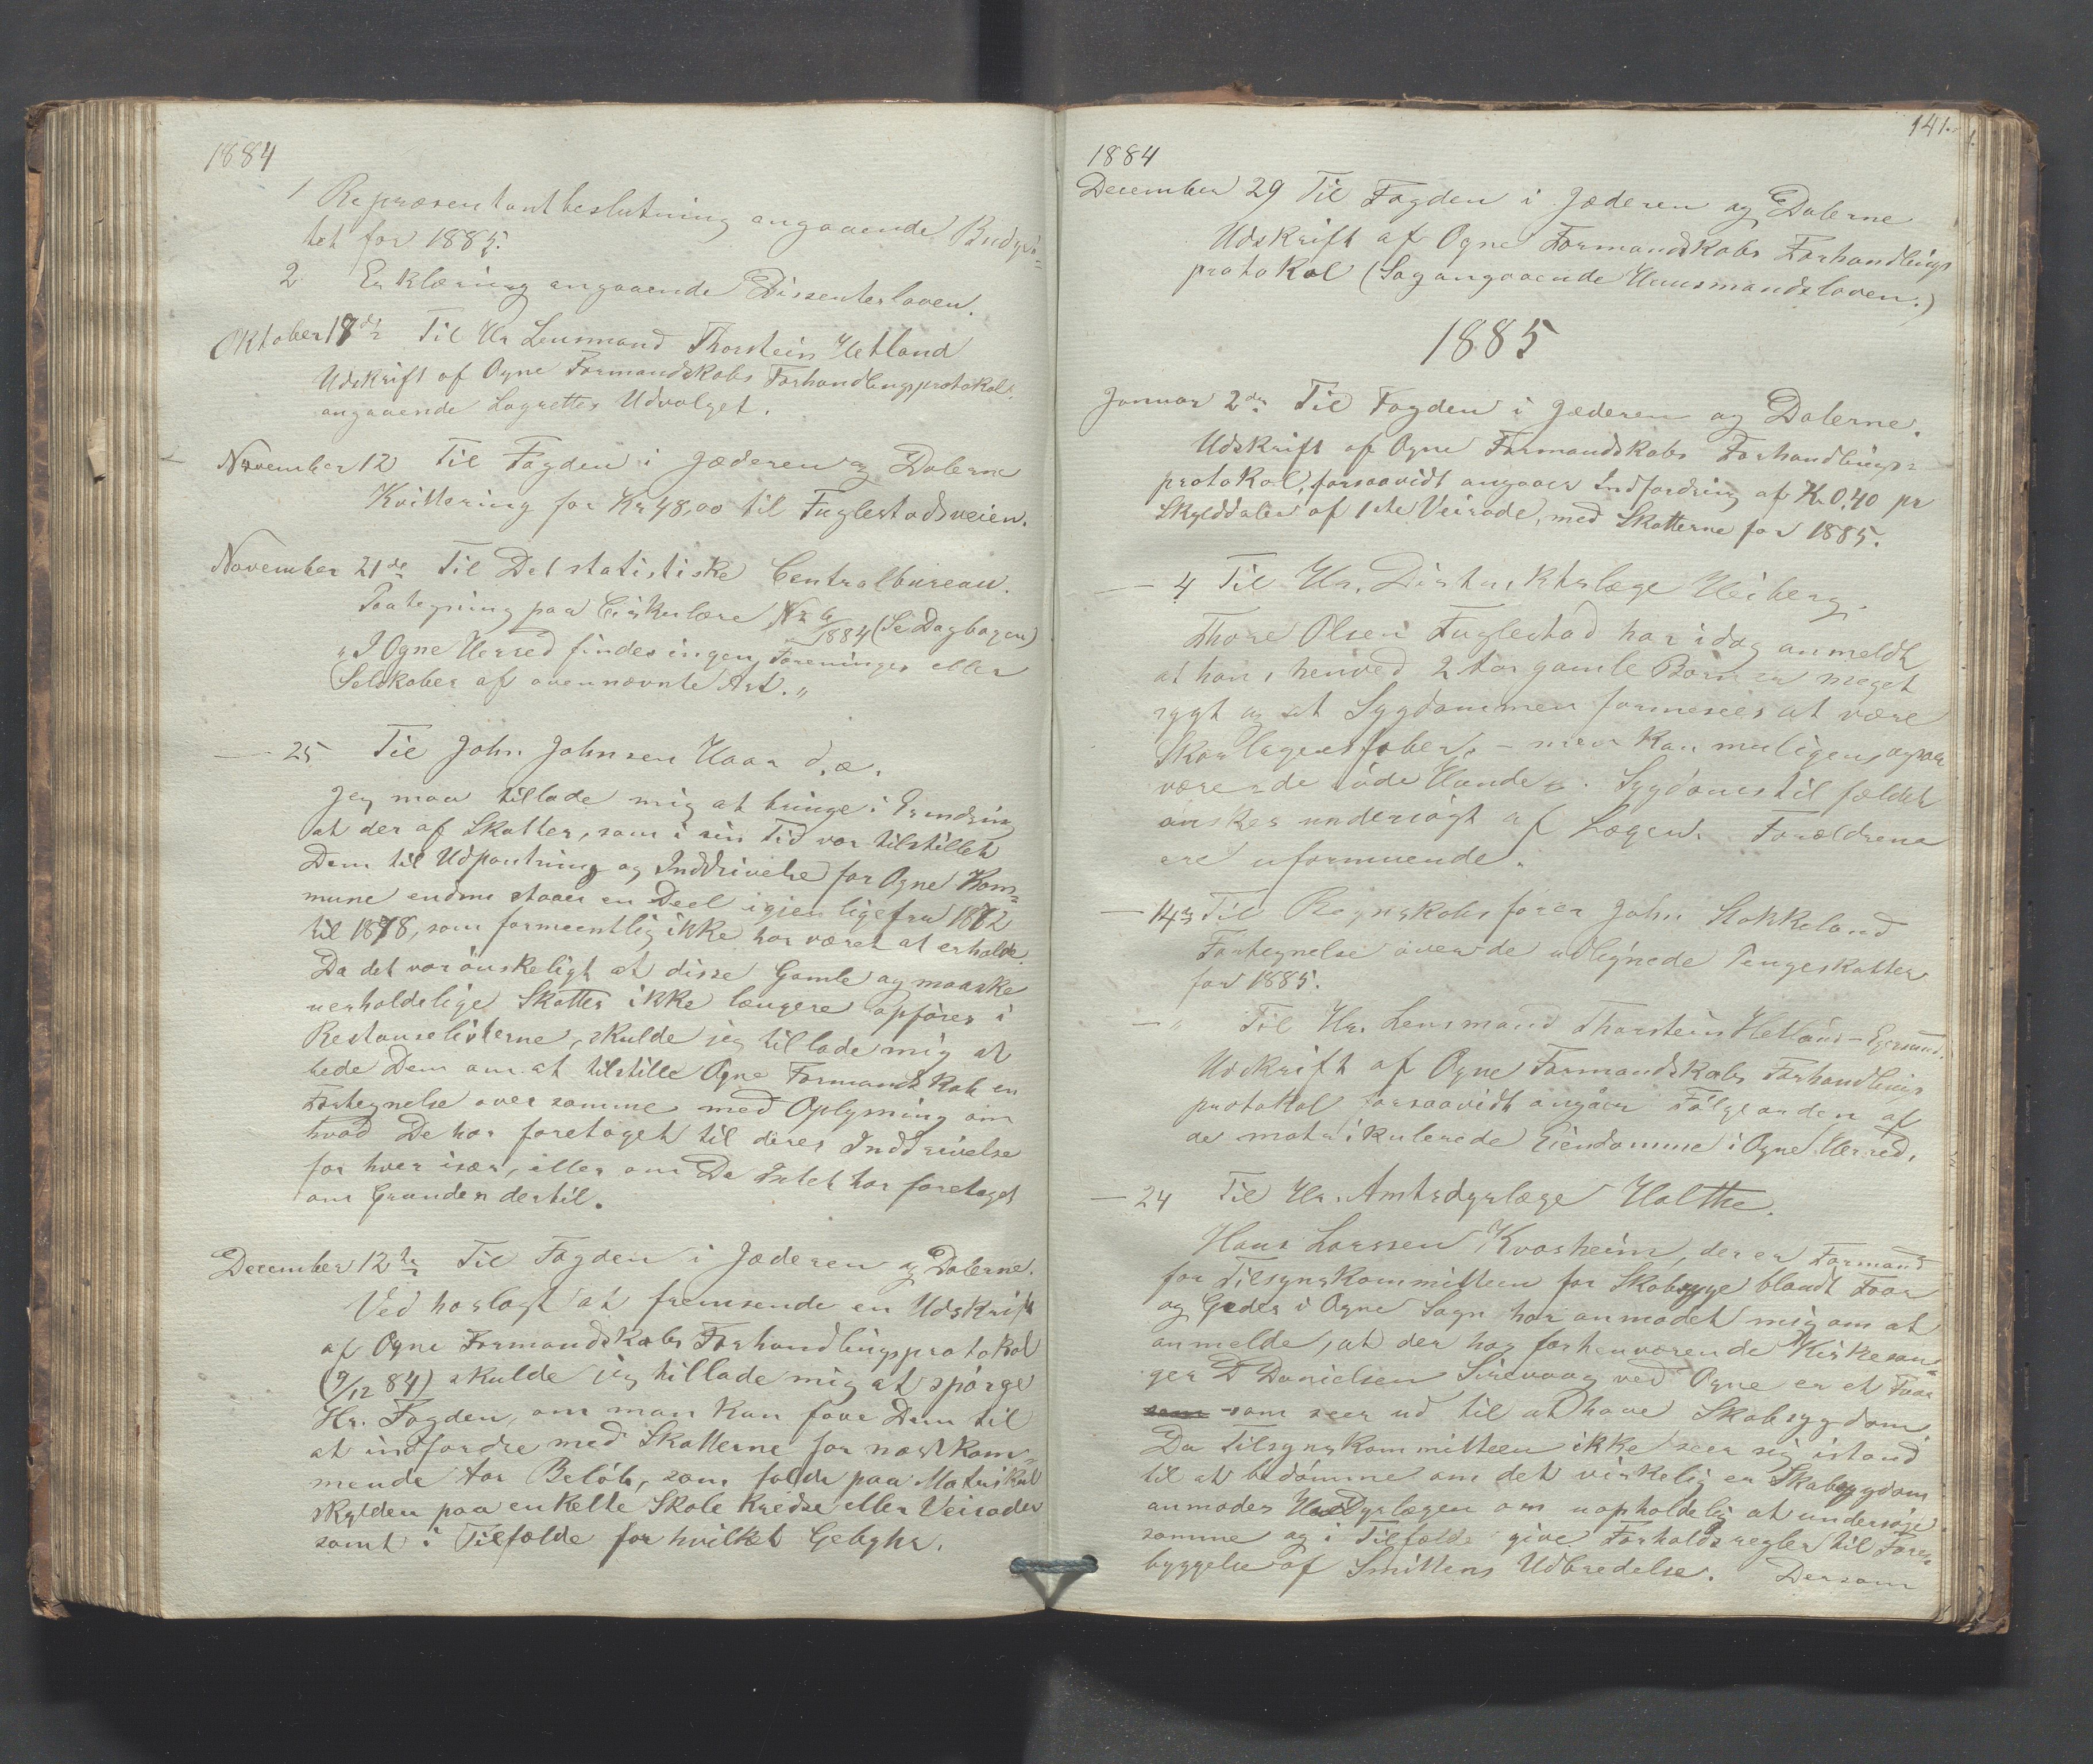 1884
1 Repræsentantbeslutning angaaende Budge=
tet for 1885.
2 Erklæring angaaende Dissenterloven.
Oktober 18de Til Hr Lensmand Thorstein Hetland
Udskrift af Ogne Formandskabs Forhandlingsprotokol,
angaaende Lagrettes Udvalget.
November 12 Til Fogden i Jæderen og Dalerne
Kvittering for Kr 48,00 til Fuglestadsveien.
November 21de Til Det statistiske Centralbureau.
Paategning paa Cirkulære No 6/1884 (Se Dagbogen)
"I Ogne Herred findes ingen Foreninger eller
Selskaber af ovennævnte Art."
— 25 Til John Johnsen Haar d.æ.
Jeg maa tillade mig at bringe i Erindring
at der af Skatter, som i sin Tid var tilstillet
Dem til Udpantning og Inddrivelse for Ogne Kom=
mune endnu staaer en Deel igjen lige fra 1872
til 1878, som formeentlig ikke har været at erholde.
Da det var ønskeligt at disse Gamle og maaske
uerholdelige Skatter ikke længere opføres i
Restanselisterne, skulde jeg tillade mig at
bede Dem om at tilstille Ogne Formandskab en
Fortegnelse over samme med Oplysning om
hvad De har foretaget til deres Inddrivelse
for hver især, eller om De Intet har foretaget
om Grunden dertil.
December 12te Til Fogden i Jæderen og Dalerne.
Ved hoslagt at fremsende en Udskrift
af Ogne Formandskabs Forhandlingsprotokol
(9/12 84) skulde jeg tillade mig at spørge
Hr. Fogden, om man kan faae Dem til
at indfordre med Skatterne for næstkom=
mende Aar Beløb, som falde paa Matrikul
skylden paa enkelte Skolekredse eller Veiroder
samt i Tilfælde for hvilket Gebyhr.
141.
1884
December 29 Til Fogden i Jæderen og Dalerne
Udskrift af Ogne Formandskabs Forhandlings
protokol (Sag angaaende Huusmandsloven.)
1885
Januar 2den Til Fogden i Jæderen og Dalerne.
Udskrift af Ogne Formandskabs Forhandlings=
protokol, forsaavidt angaaer Indfordring af Kr 0,40 pr
Skylddaler af 1ste Veirode, med Skatterne for 1885.
— 4 Til Hr. Distriktslæge Heiberg.
Thore Olsen Fuglestad har idag anmeldt
at hans henved 2 Aar gamle Barn er meget
sygt og at Sygdommen formenes at være
Skarlagensfeber, – men kan muligens ogsaa
være de røde Hunde. Sygdomstilfældet
ønskes undersøgt af Lægen. Forældrene
ere uformuende.
— 14 Til Regnskabsfører John Stokkeland
Fortegnelse over de udlignede Pengeskatter
for 1885.
— " Til Hr. Lensmand Thorstein Hetland – Egersund.
Udskrift af Ogne Formandskabs Forhandlings
protokol forsaavidt angaaer Følgeorden af
de matrikulerede Eiendomme i Ogne Herred.
— 24 Til Hr. Amtsdyrlæge Holthe.
Hans Larssen Kvasheim, der er Formand
for Tilsynskommitteen for Skabsyge blandt Faar
og Geder i Ogne Sogn har anmodet mig om at
anmelde, at der hos forhenværende Kirkesan=
ger D Danielsen Sirevaag ved Ogne er et Faar
som som seer ud til at have Skabsygdom.
Da Tilsynskommitteen ikke seer sig istand
til at bedømme om det virkelig er Skabsygdom
anmodes Dyrlægen om uopholdelig at undersøge
samme og i Tilfælde give Forholdsregler til Fore=
byggelse af Smittens Udbredelse. Dersom